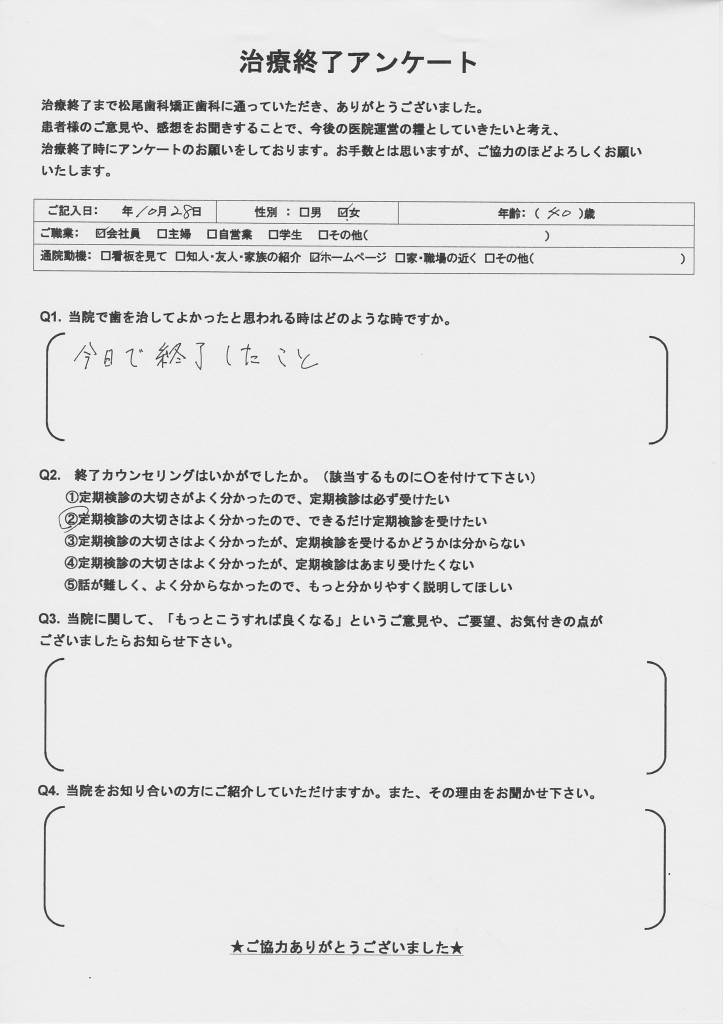 治療終了アンケート
治療終了まで松尾歯科矯正歯科に通っていただき、ありがとうございました。
患者様のご意見や、感想をお聞きすることで、今後の医院運営の糧としていきたいと考え、
治療終了時にアンケートのお願いをしております。お手数とは思いますが、ご協力のほどよろしくお願い
いたします。
ご記入日： 年10月28日 性別 ： □男 ☑女 年齢：（ 40 ）歳
ご職業： ☑会社員 □主婦 □自営業 □学生 □その他（ ）
通院動機：□看板を見て □知人・友人・家族の紹介 ☑ホームページ □家・職場の近く □その他（ ）
Q1. 当院で歯を治してよかったと思われる時はどのような時ですか。
今日で終了したこと
Q2. 終了カウンセリングはいかがでしたか。（該当するものに〇を付けて下さい）
①定期検診の大切さがよく分かったので、定期検診は必ず受けたい
②定期検診の大切さはよく分かったので、できるだけ定期検診を受けたい
③定期検診の大切さはよく分かったが、定期検診を受けるかどうかは分からない
④定期検診の大切さはよく分かったが、定期検診はあまり受けたくない
⑤話が難しく、よく分からなかったので、もっと分かりやすく説明してほしい
Q3. 当院に関して、「もっとこうすれば良くなる」というご意見や、ご要望、お気付きの点が
ございましたらお知らせ下さい。
Q4. 当院をお知り合いの方にご紹介していただけますか。また、その理由をお聞かせ下さい。
★ご協力ありがとうございました★